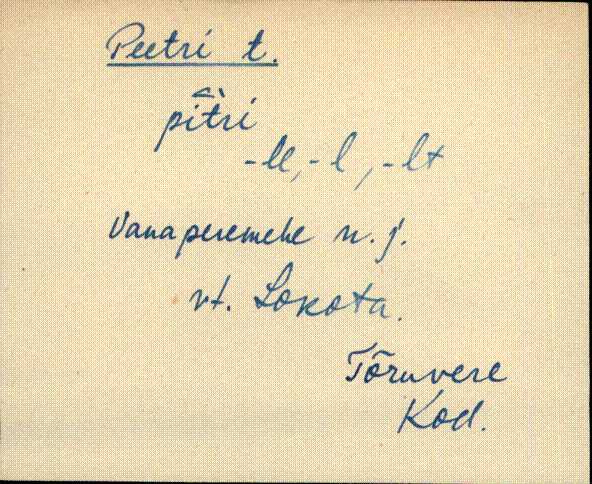 Peetri t.
pî͔tri
-lle, -l, -lt
Vanaperemehe n. j.
vt. Lokota.
Tõruvere
Kod.